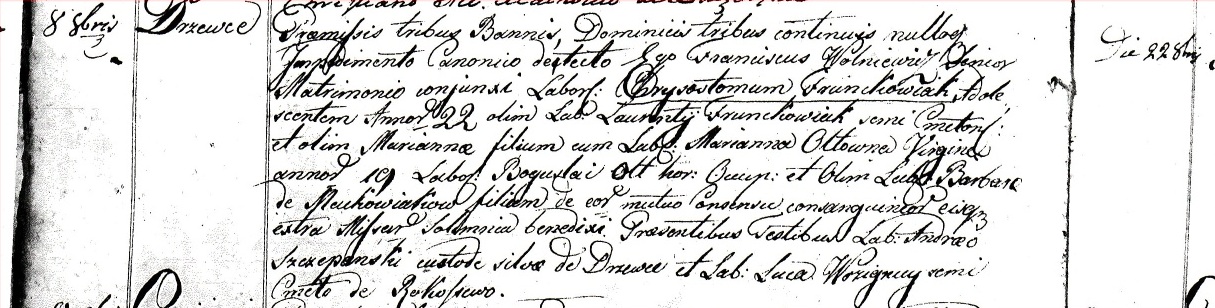 8 8bris
Drzewce
Præmissis tribus Bannis, Dominicis tribus continuis nulloq
Impedimento Canonico detecto Ego Franciscus Wolniewicz Senior
Matrimonio conjunxi Labor: Chrysostomum Frunckowiak Adole
scentem Annor 22 olim Lab: Laurentij Frunckowiak semi Cmeton:
et olim Mariannæ filium cum Lab: Marianna Ottowna Virgine
annor 19 Labor: Boguslai Ott hor: Occup: et Olim Lab: Barbaræ
de Muchowiakow filiam de eor mutuo Consensu consanguineor eisq
extra Missar Solemnia benedixi. Præsentibus Testibus Lab: Andrea
Szczepanski custode silvæ de Drzewce et Lab: Luca semi
Cmeto de Rokossowo.
Die 22 8bris